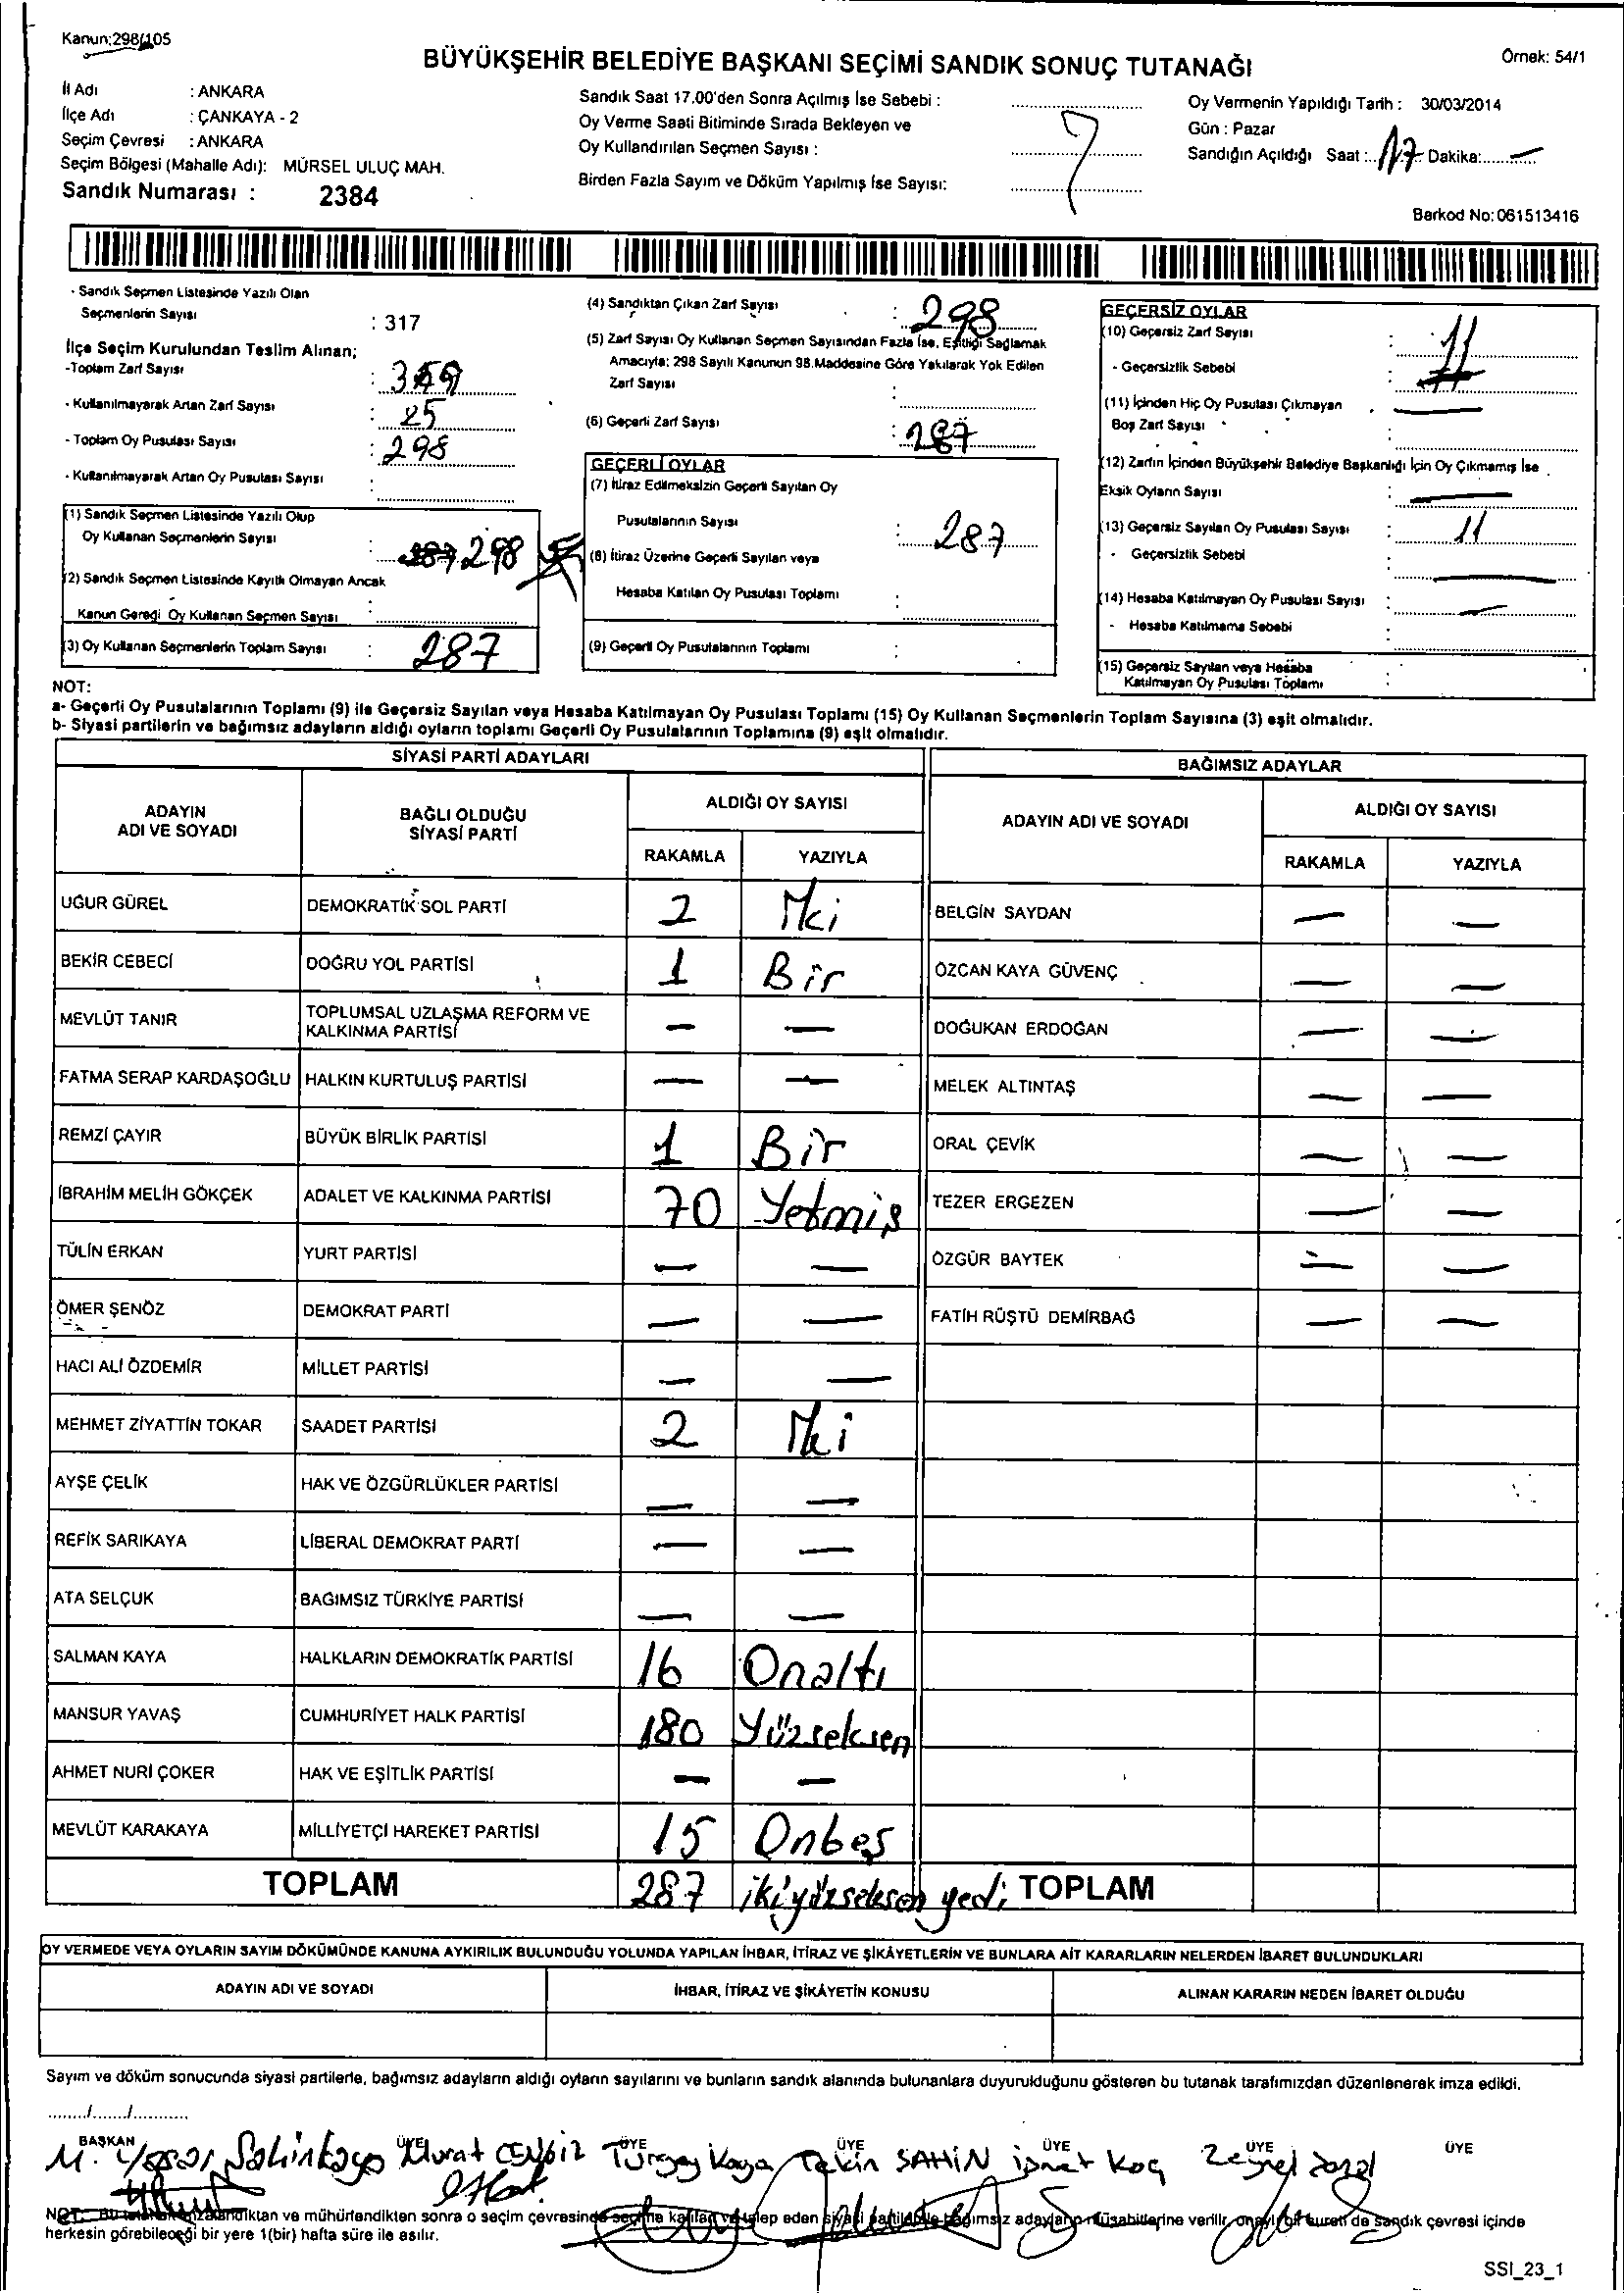 Kanun:298/105
BÜYÜKŞEHİR BELEDİYE BAŞKANI SEÇİMİ SANDIK SONUÇ TUTANAĞI
Örnek: 54/1
İl Adı : ANKARA
İlçe Adı : ÇANKAYA - 2
Seçim Çevresi : ANKARA
Seçim Bölgesi (Mahalle Adı): MÜRSEL ULUÇ MAH.
Sandık Numarası : 2384
Sandık Saat 17.00'den Sonra Açılmış İse Sebebi :
Oy Verme Saati Bitiminde Sırada Bekleyen ve
Oy Kullandırılan Seçmen Sayısı :
Birden Fazla Sayım ve Döküm Yapılmış İse Sayısı:
Oy Vermenin Yapıldığı Tarih : 30/03/2014
Gün : Pazar
Sandığın Açıldığı Saat : 17 Dakika: —
Barkod No: 061513416
- Sandık Seçmen Listesinde Yazılı Olan
Seçmenlerin Sayısı : 317
İlçe Seçim Kurulundan Teslim Alınan;
-Toplam Zarf Sayısı :
- Kullanılmayarak Artan Zarf Sayısı : 25
- Toplam Oy Pusulası Sayısı : 298
- Kullanılmayarak Artan Oy Pusulası Sayısı :
(1) Sandık Seçmen Listesinde Yazılı Olup
Oy Kullanan Seçmenlerin Sayısı : 287 298
(2) Sandık Seçmen Listesinde Kayıtlı Olmayan Ancak
Kanun Gereği Oy Kullanan Seçmen Sayısı :
(3) Oy Kullanan Seçmenlerin Toplam Sayısı : 287
(4) Sandıktan Çıkan Zarf Sayısı : 298
(5) Zarf Sayısı Oy Kullanan Seçmen Sayısından Fazla İse, Eşitliği Sağlamak
Amacıyla; 298 Sayılı Kanunun 98.Maddesine Göre Yakılarak Yok Edilen
Zarf Sayısı :
(6) Geçerli Zarf Sayısı : 287
GEÇERLİ OYLAR
(7) İtiraz Edilmeksizin Geçerli Sayılan Oy
Pusulalarının Sayısı : 287
(8) İtiraz Üzerine Geçerli Sayılan veya
Hesaba Katılan Oy Pusulası Toplamı :
(9) Geçerli Oy Pusulalarının Toplamı :
GEÇERSİZ OYLAR
(10) Geçersiz Zarf Sayısı : 11
- Geçersizlik Sebebi :
(11) İçinden Hiç Oy Pusulası Çıkmayan : —
Boş Zarf Sayısı :
(12) Zarfın İçinden Büyükşehir Belediye Başkanlığı İçin Oy Çıkmamış İse
Eksik Oyların Sayısı : —
(13) Geçersiz Sayılan Oy Pusulası Sayısı : 11
- Geçersizlik Sebebi : —
(14) Hesaba Katılmayan Oy Pusulası Sayısı : —
- Hesaba Katılmama Sebebi :
(15) Geçersiz Sayılan veya Hesaba
Katılmayan Oy Pusulası Toplamı :
NOT:
a- Geçerli Oy Pusulalarının Toplamı (9) ile Geçersiz Sayılan veya Hesaba Katılmayan Oy Pusulası Toplamı (15) Oy Kullanan Seçmenlerin Toplam Sayısına (3) eşit olmalıdır.
b- Siyasi partilerin ve bağımsız adayların aldığı oyların toplamı Geçerli Oy Pusulalarının Toplamına (9) eşit olmalıdır.
SİYASİ PARTİ ADAYLARI
BAĞIMSIZ ADAYLAR
ADAYIN ADI VE SOYADI
BAĞLI OLDUĞU SİYASİ PARTİ
ALDIĞI OY SAYISI
RAKAMLA YAZIYLA
ADAYIN ADI VE SOYADI
ALDIĞI OY SAYISI
RAKAMLA YAZIYLA
UĞUR GÜREL DEMOKRATİK SOL PARTİ 2 İki BELGİN SAYDAN — —
BEKİR CEBECİ DOĞRU YOL PARTİSİ 1 Bir ÖZCAN KAYA GÜVENÇ — —
MEVLÜT TANIR TOPLUMSAL UZLAŞMA REFORM VE KALKINMA PARTİSİ — — DOĞUKAN ERDOĞAN — —
FATMA SERAP KARDAŞOĞLU HALKIN KURTULUŞ PARTİSİ — — MELEK ALTINTAŞ — —
REMZİ ÇAYIR BÜYÜK BİRLİK PARTİSİ 1 Bir ORAL ÇEVİK — —
İBRAHİM MELİH GÖKÇEK ADALET VE KALKINMA PARTİSİ 70 Yetmiş TEZER ERGEZEN — —
TÜLİN ERKAN YURT PARTİSİ — — ÖZGÜR BAYTEK — —
ÖMER ŞENÖZ DEMOKRAT PARTİ — — FATİH RÜŞTÜ DEMİRBAĞ — —
HACI ALİ ÖZDEMİR MİLLET PARTİSİ — —
MEHMET ZİYATTİN TOKAR SAADET PARTİSİ 2 İki
AYŞE ÇELİK HAK VE ÖZGÜRLÜKLER PARTİSİ — —
REFİK SARIKAYA LİBERAL DEMOKRAT PARTİ — —
ATA SELÇUK BAĞIMSIZ TÜRKİYE PARTİSİ — —
SALMAN KAYA HALKLARIN DEMOKRATİK PARTİSİ 16 Onaltı
MANSUR YAVAŞ CUMHURİYET HALK PARTİSİ 180 Yüzseksen
AHMET NURİ ÇOKER HAK VE EŞİTLİK PARTİSİ — —
MEVLÜT KARAKAYA MİLLİYETÇİ HAREKET PARTİSİ 15 Onbeş
TOPLAM 287 ikiyüzseksen yedi TOPLAM
OY VERMEDE VEYA OYLARIN SAYIM DÖKÜMÜNDE KANUNA AYKIRILIK BULUNDUĞU YOLUNDA YAPILAN İHBAR, İTİRAZ VE ŞİKÂYETLERİN VE BUNLARA AİT KARARLARIN NELERDEN İBARET BULUNDUKLARI
ADAYIN ADI VE SOYADI İHBAR, İTİRAZ VE ŞİKÂYETİN KONUSU ALINAN KARARIN NEDEN İBARET OLDUĞU
Sayım ve döküm sonucunda siyasi partilerle, bağımsız adayların aldığı oyların sayılarını ve bunların sandık alanında bulunanlara duyurulduğunu gösteren bu tutanak tarafımızdan düzenlenerek imza edildi.
......../......./...........
BAŞKAN ÜYE ÜYE ÜYE ÜYE ÜYE ÜYE
M. Yaşar Şahinkaya Murat CENGİZ Turgay Kaya Tekin ŞAHİN ismet Koç Zeynel
NOT: Bu tutanak imzalandıktan ve mühürlendikten sonra o seçim çevresinde seçime katılan ve talep eden siyasi partilerle bağımsız adayların müsahitlerine verilir, onaylı bir sureti de sandık çevresi içinde
herkesin görebileceği bir yere 1(bir) hafta süre ile asılır.
SSI_23_1